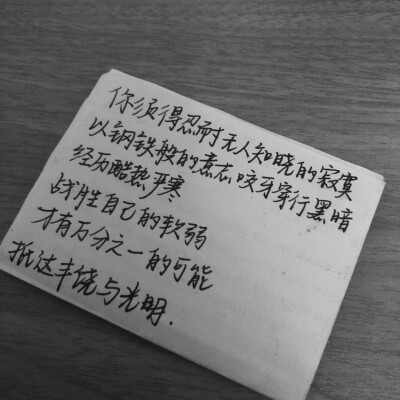 你须得忍耐无人知晓的寂寞
以钢铁般的意志咬牙穿行黑暗
经历酷热严寒
战胜自己的软弱
才有万分之一的可能
抵达丰饶与光明.